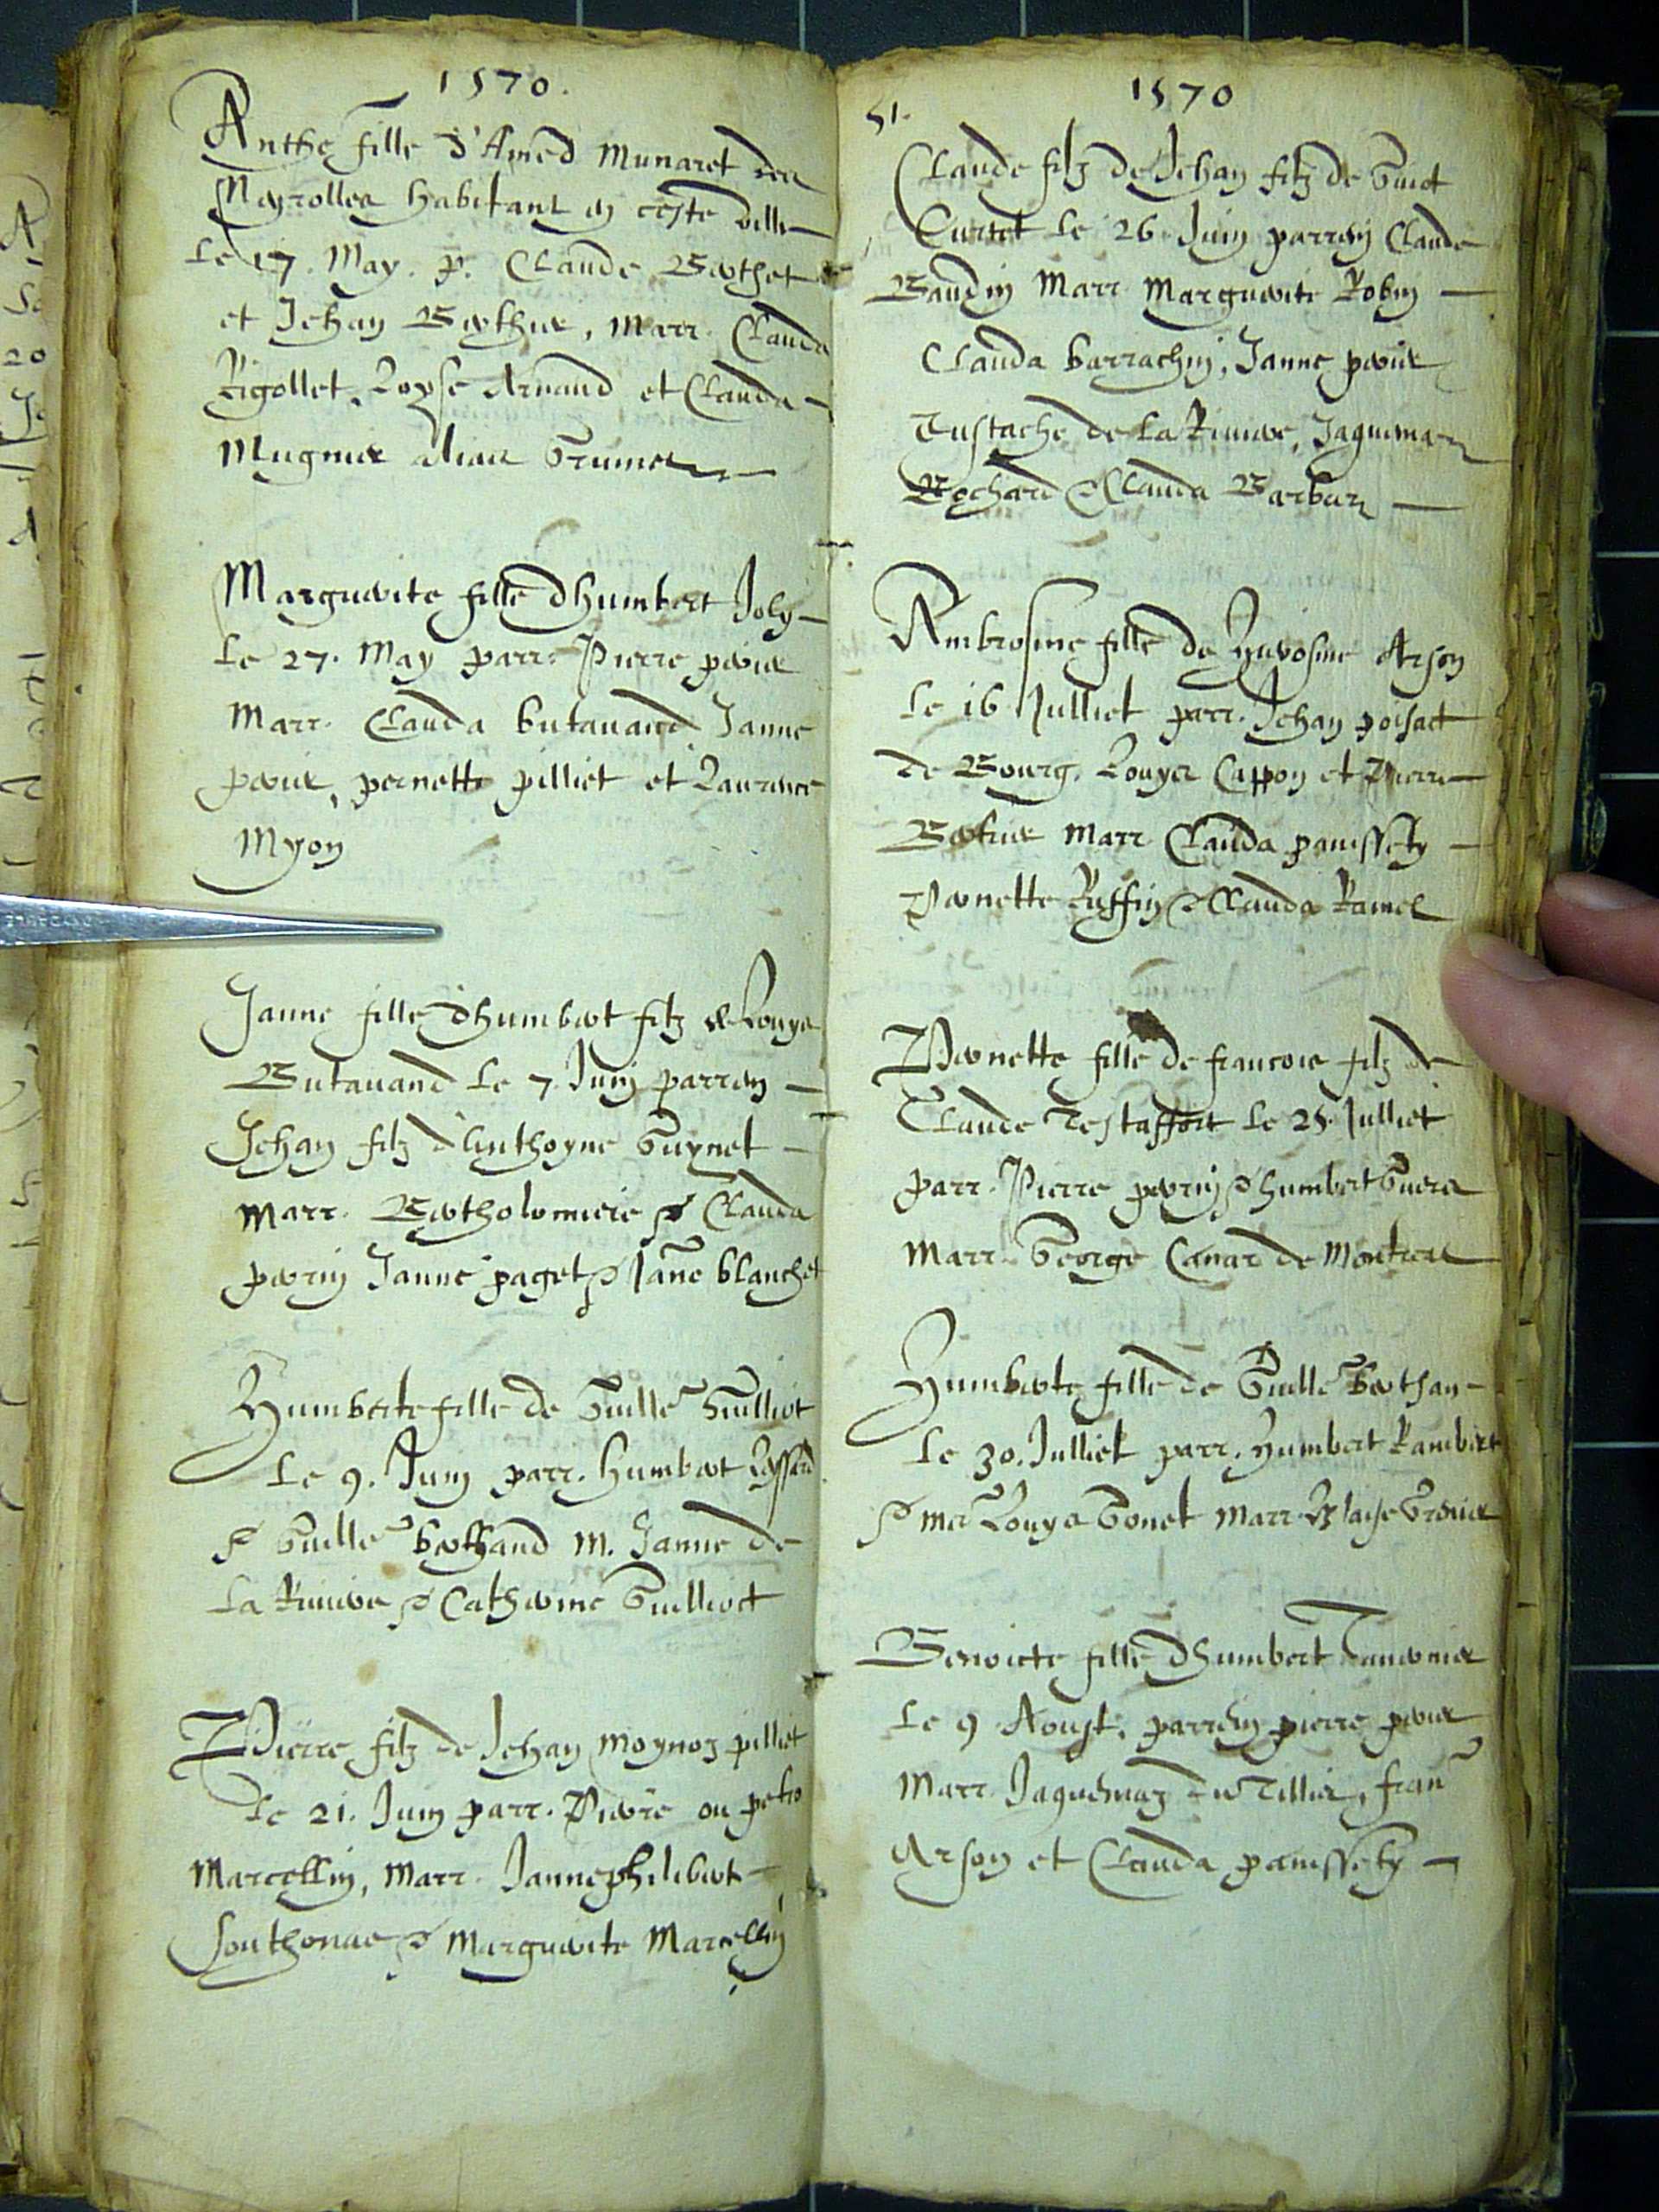 1570.
Anthe fille d'Amed Munaret des
Neyrolles habitant en ceste ville
Le 17. May. p. Claude Berthet
et Jehan Berthier, Marr. Clauda
Rigollet, Loyse Arnaud et Clauda
Mugnier alias
Marguerite fille dhumbert Joly
Le 27. May parr. Pierre perier
Marr. Clauda butavand Janne
perier, pernette pilliet et Laurence
Myon
Janne fille dhumbert filz de Louys
Butavand Le 7. Juin parrein
Jehan filz d'Anthoyne Guynet
Marr. Bertholomiere & Clauda
perrin Janne paget & Jane blanchet
Humberte fille de Guille Guilliot
Le 9. Juin parr. humbert
& Guille berthand M. Janne de
La Riviere & Catherine Guilliot
Pierre filz de Jehan Moynoz pilliet
Le 21. Juin parr. Pierre ou petro
Marcellin, Marr. Janne philibert
Southonas & Marguerite Marcellin
1570
51.
Claude filz de Jehan filz de Guiot
Curtet Le 26 Juin parrein Claude
Baudin Marr Marguerite Robin
Clauda barrachin, Janne perier
Eustache de La Riviere, Jaquema
Rochard & Clauda Barbarin
Ambrosine fille de Hierosme Arson
Le 16 Julliet parr. Jehan poisat
de Bourg. Louys Cappon et Pierre
Bertier Marr Clauda panissety
Pernette Ruffin & Clauda Ramel
Pernette fille de francois filz de
Claude Testaffort Le 25. Julliet
parr. Pierre perrin & humbert Guera
Marr. George Canar de
Humberte fille de Guille berthan
Le 30. Julliet parr. Humbert Rambert
& mre Louys Gonet Marr Blaise
Benoicte fille dhumbert Tavernier
Le 9 Aoust, parrein pierre perier
Marr. Jaquemaz du Tillier, fran
Arson et Clauda panissety